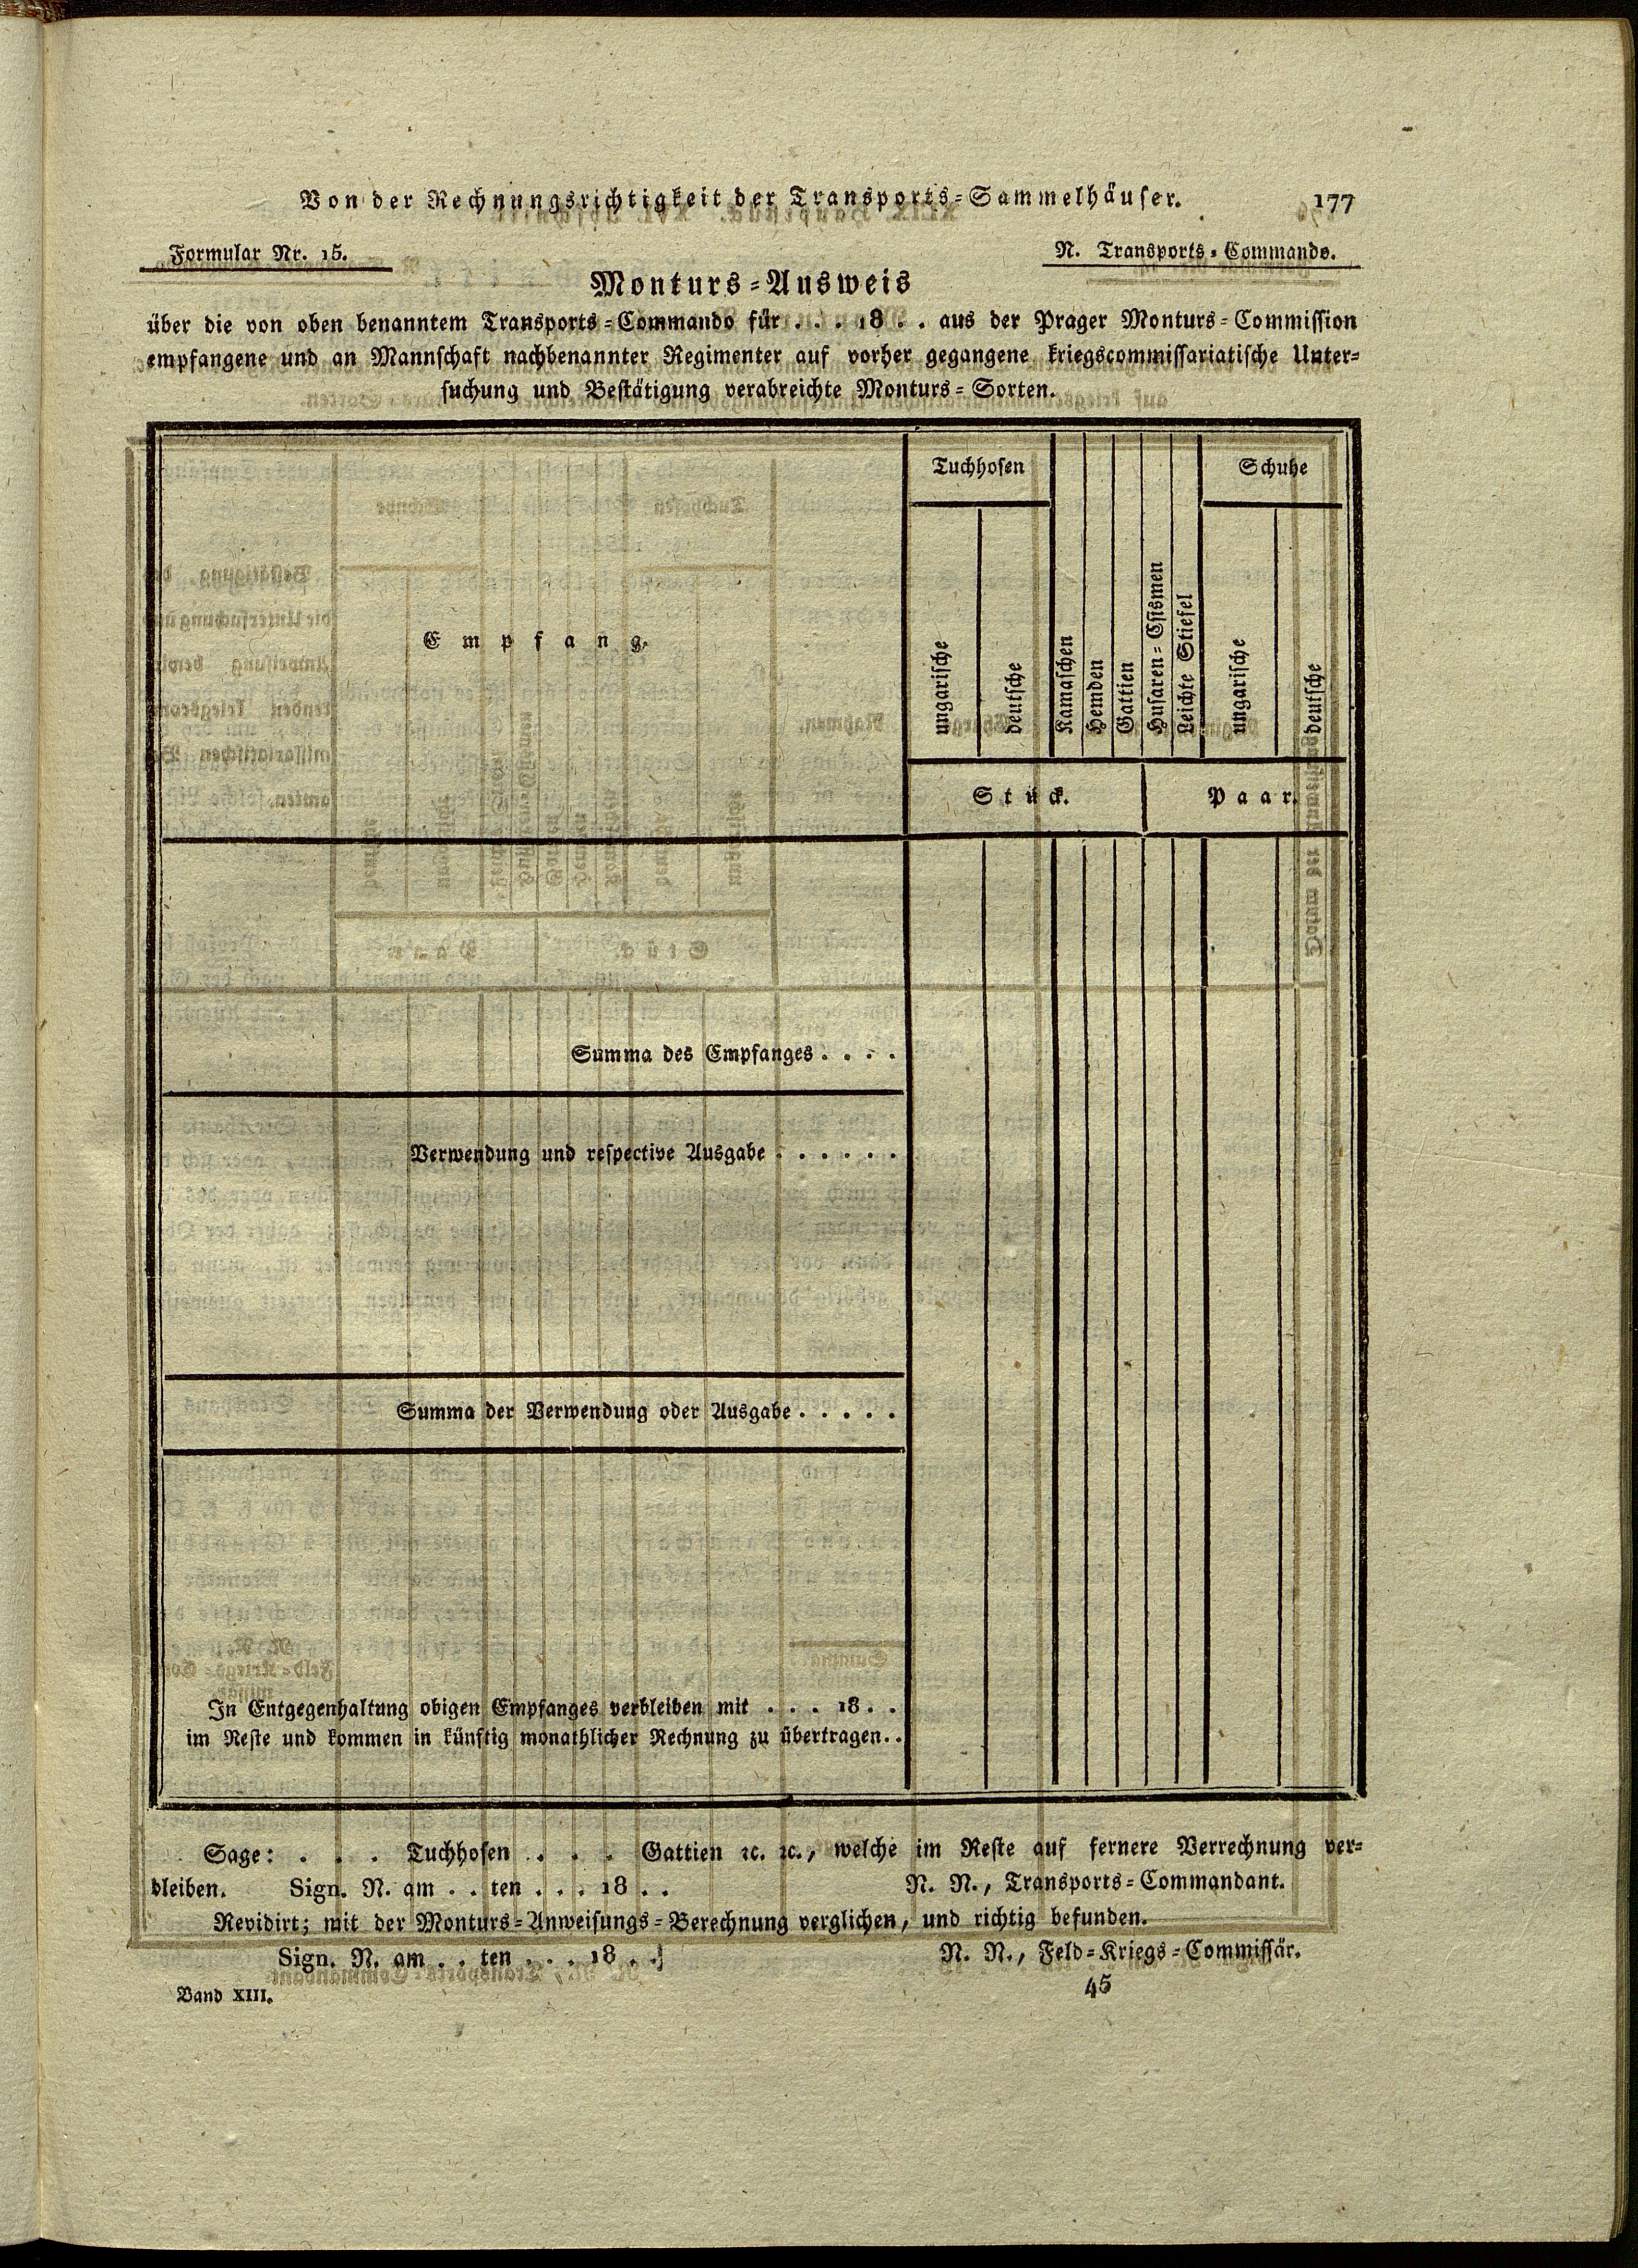 Von der Rechnungsrichtigkeit der Transports-Sammelhäuser. 177
Formular Nr. 15. N. Transports-Commando.
Monturs-Ausweis
über die von oben benanntem Transports-Commando für . . . 18 . . aus der Prager Monturs-Commission
empfangene und an Mannschaft nachbenannter Regimenter auf vorher gegangene kriegscommissariatische Unter-
suchung und Bestätigung verabreichte Monturs-Sorten.
Empfang.
Tuchhosen
ungarische
deutsche
Kamaschen
Hemden
Gattien
Husaren-Csismen
Leichte Stiefel
Schuhe
ungarische
deutsche
Stück.
Paar.
Summa des Empfanges . . . .
Verwendung und respective Ausgabe . . . . . .
Summa der Verwendung oder Ausgabe . . . . .
In Entgegenhaltung obigen Empfanges verbleiben mit . . . 18 . .
im Reste und kommen in künftig monathlicher Rechnung zu übertragen. .
Sage: . . . Tuchhosen . . . Gattien ꝛc. ꝛc., welche im Reste auf fernere Verrechnung ver-
bleiben. Sign. N. am . . ten . . . 18 . . N. N., Transports-Commandant.
Revidirt; mit der Monturs-Anweisungs-Berechnung verglichen, und richtig befunden.
Sign. N. am . . ten . . . 18 . . N. N., Feld-Kriegs-Commissär.
Band XIII. 45